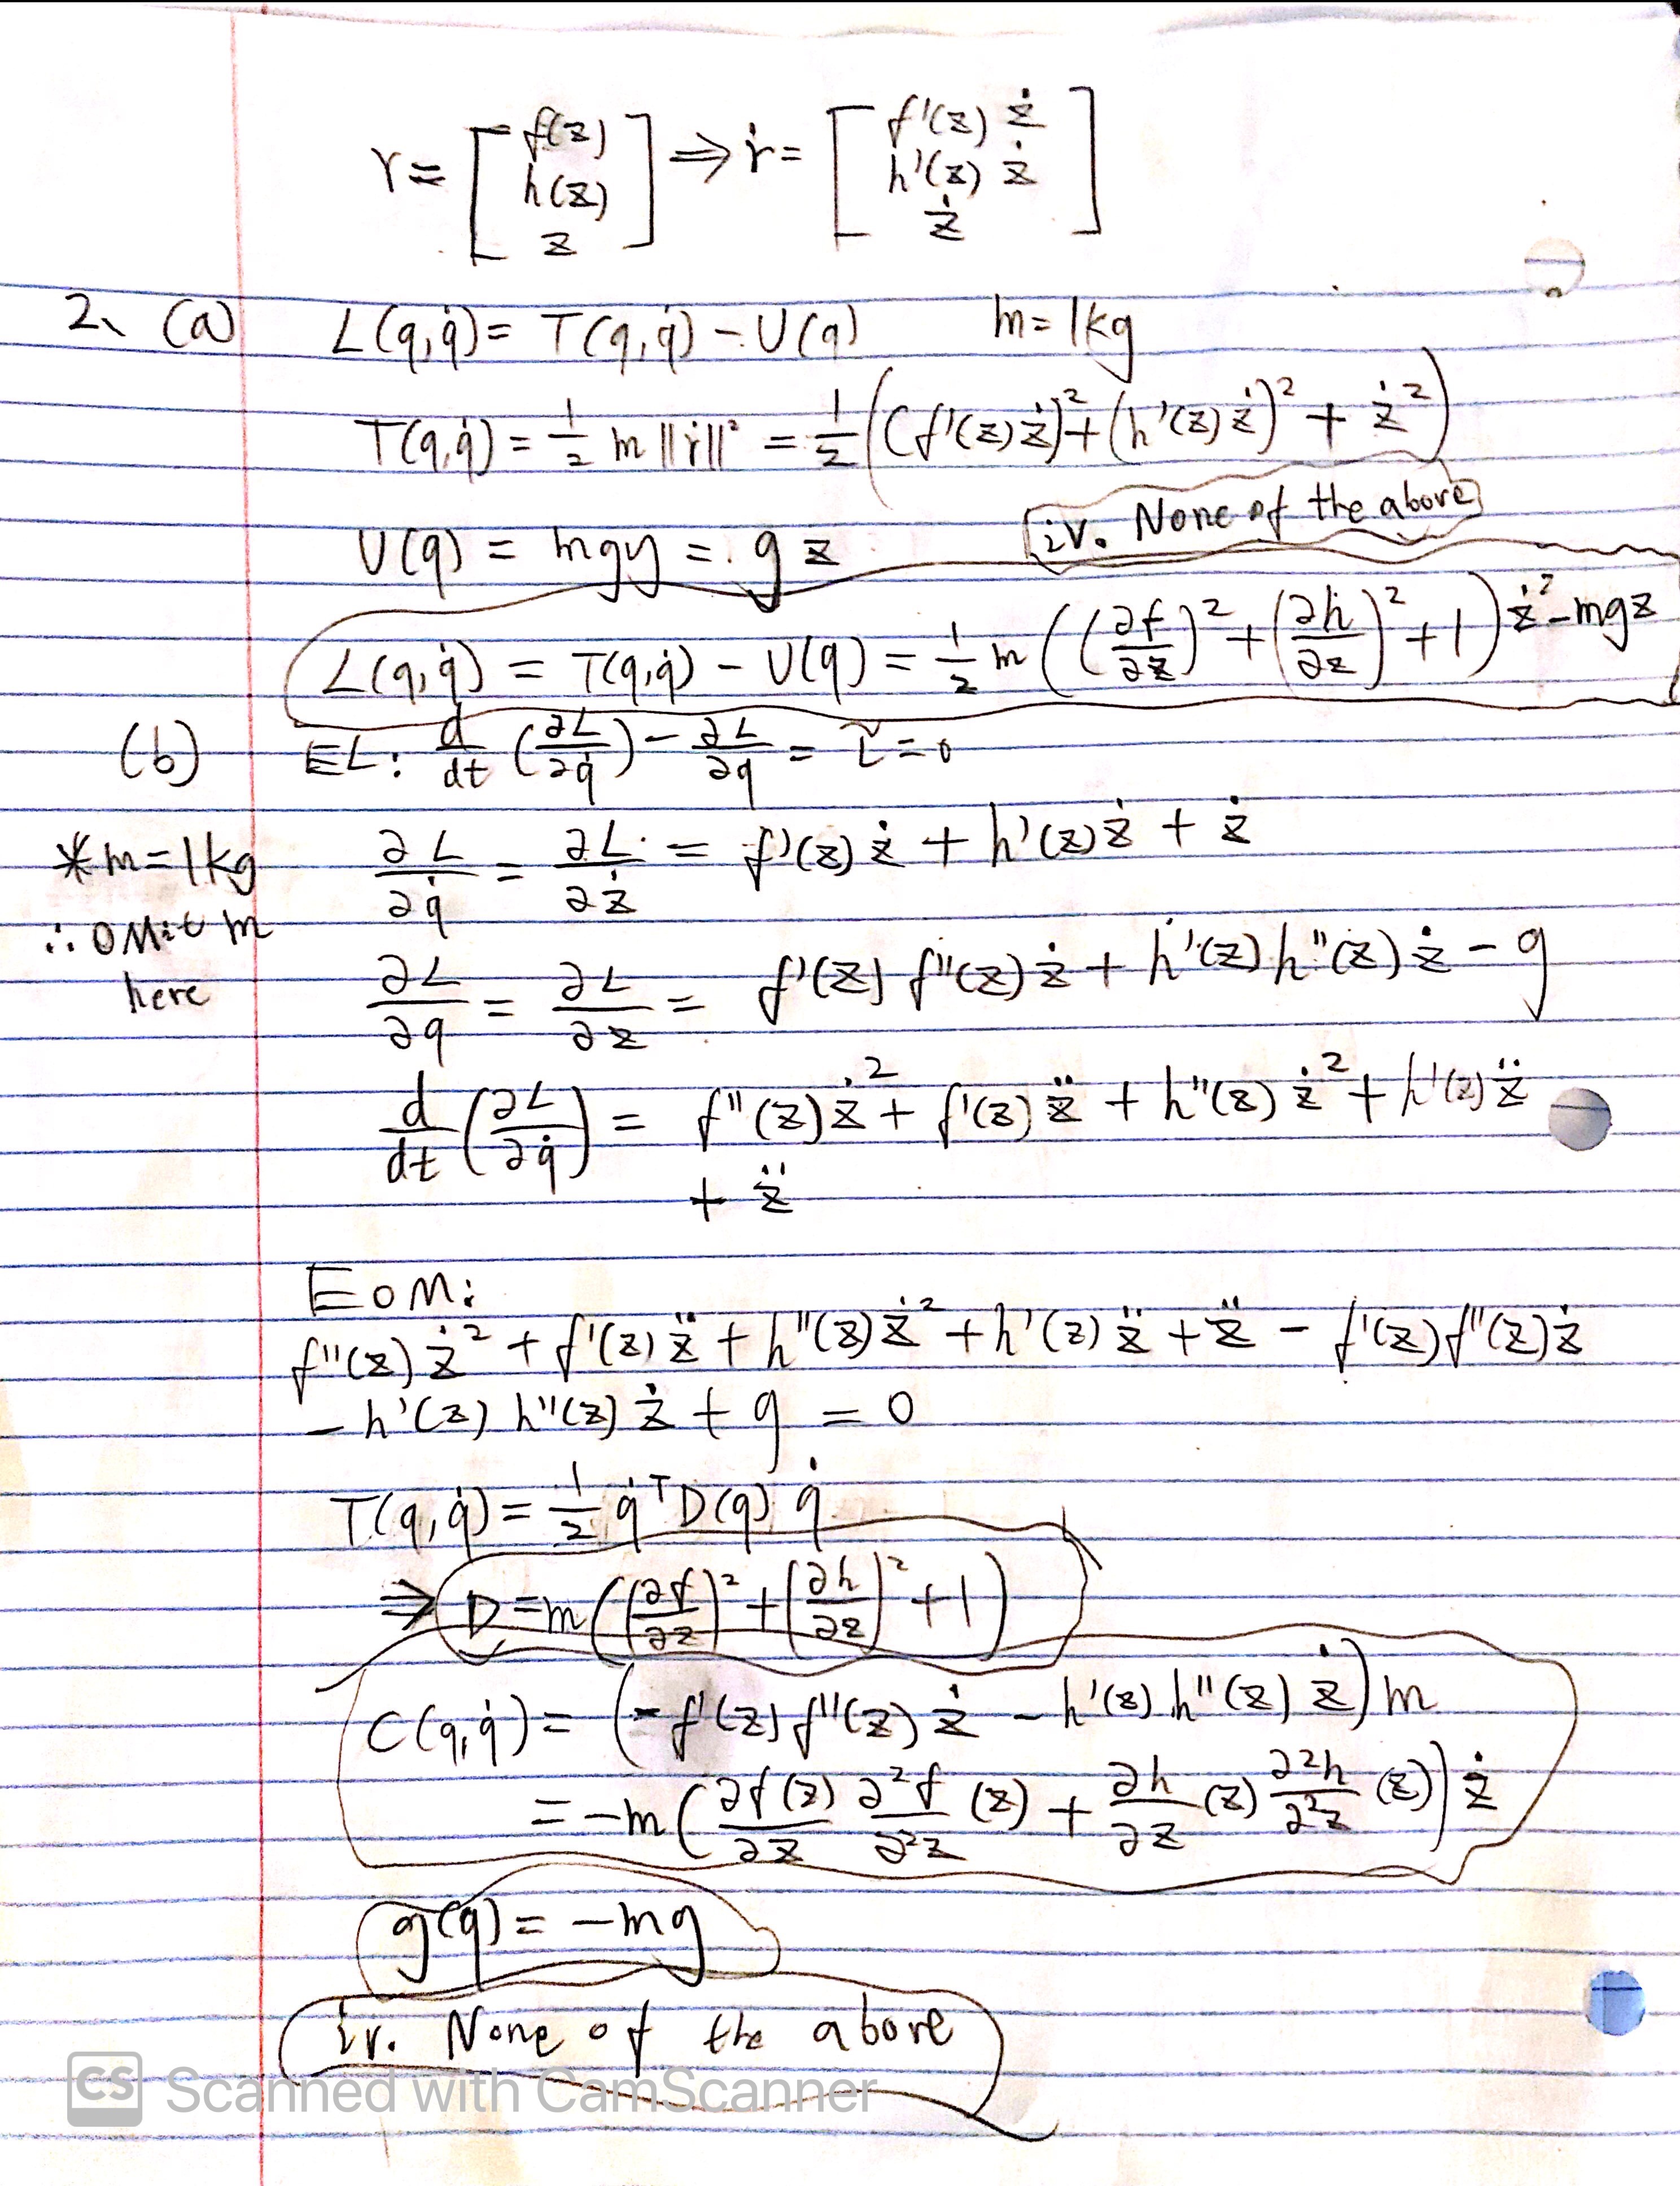 r = [ f(z) h(z) z ] ⇒ ṙ = [ f'(z) ż h'(z) ż ż ]
2. (a) L(q,q̇) = T(q,q̇) - U(q) m = 1kg
T(q,q̇) = 1/2 m ||ṙ||² = 1/2 ((f'(z) ż)² + (h'(z) ż)² + ż²)
iv. None of the above
U(q) = mgy = g z
L(q,q̇) = T(q,q̇) - U(q) = 1/2 m ((∂f/∂z)² + (∂h/∂z)² + 1) ż² - mgz
(b) EL: d/dt (∂L/∂q̇) - ∂L/∂q = τ = 0
*m = 1kg ∂L/∂q̇ = ∂L/∂ż = f'(z) ż + h'(z) ż + ż
∴ omit m
here ∂L/∂q = ∂L/∂z = f'(z) f''(z) ż + h'(z) h''(z) ż - g
d/dt (∂L/∂q̇) = f''(z) ż² + f'(z) z̈ + h''(z) ż² + h'(z) z̈
+ z̈
EOM:
f''(z) ż² + f'(z) z̈ + h''(z) ż² + h'(z) z̈ + z̈ - f'(z) f''(z) ż
- h'(z) h''(z) ż + g = 0
T(q,q̇) = 1/2 q̇ᵀ D(q) q̇
⇒ D = m ((∂f/∂z)² + (∂h/∂z)² + 1)
C(q,q̇) = (-f'(z) f''(z) ż - h'(z) h''(z) ż) m
= -m (∂f(z)/∂z ∂²f/∂²z (z) + ∂h/∂z (z) ∂²h/∂²z (z)) ż
g(q) = -mg
iv. None of the above
CS Scanned with CamScanner